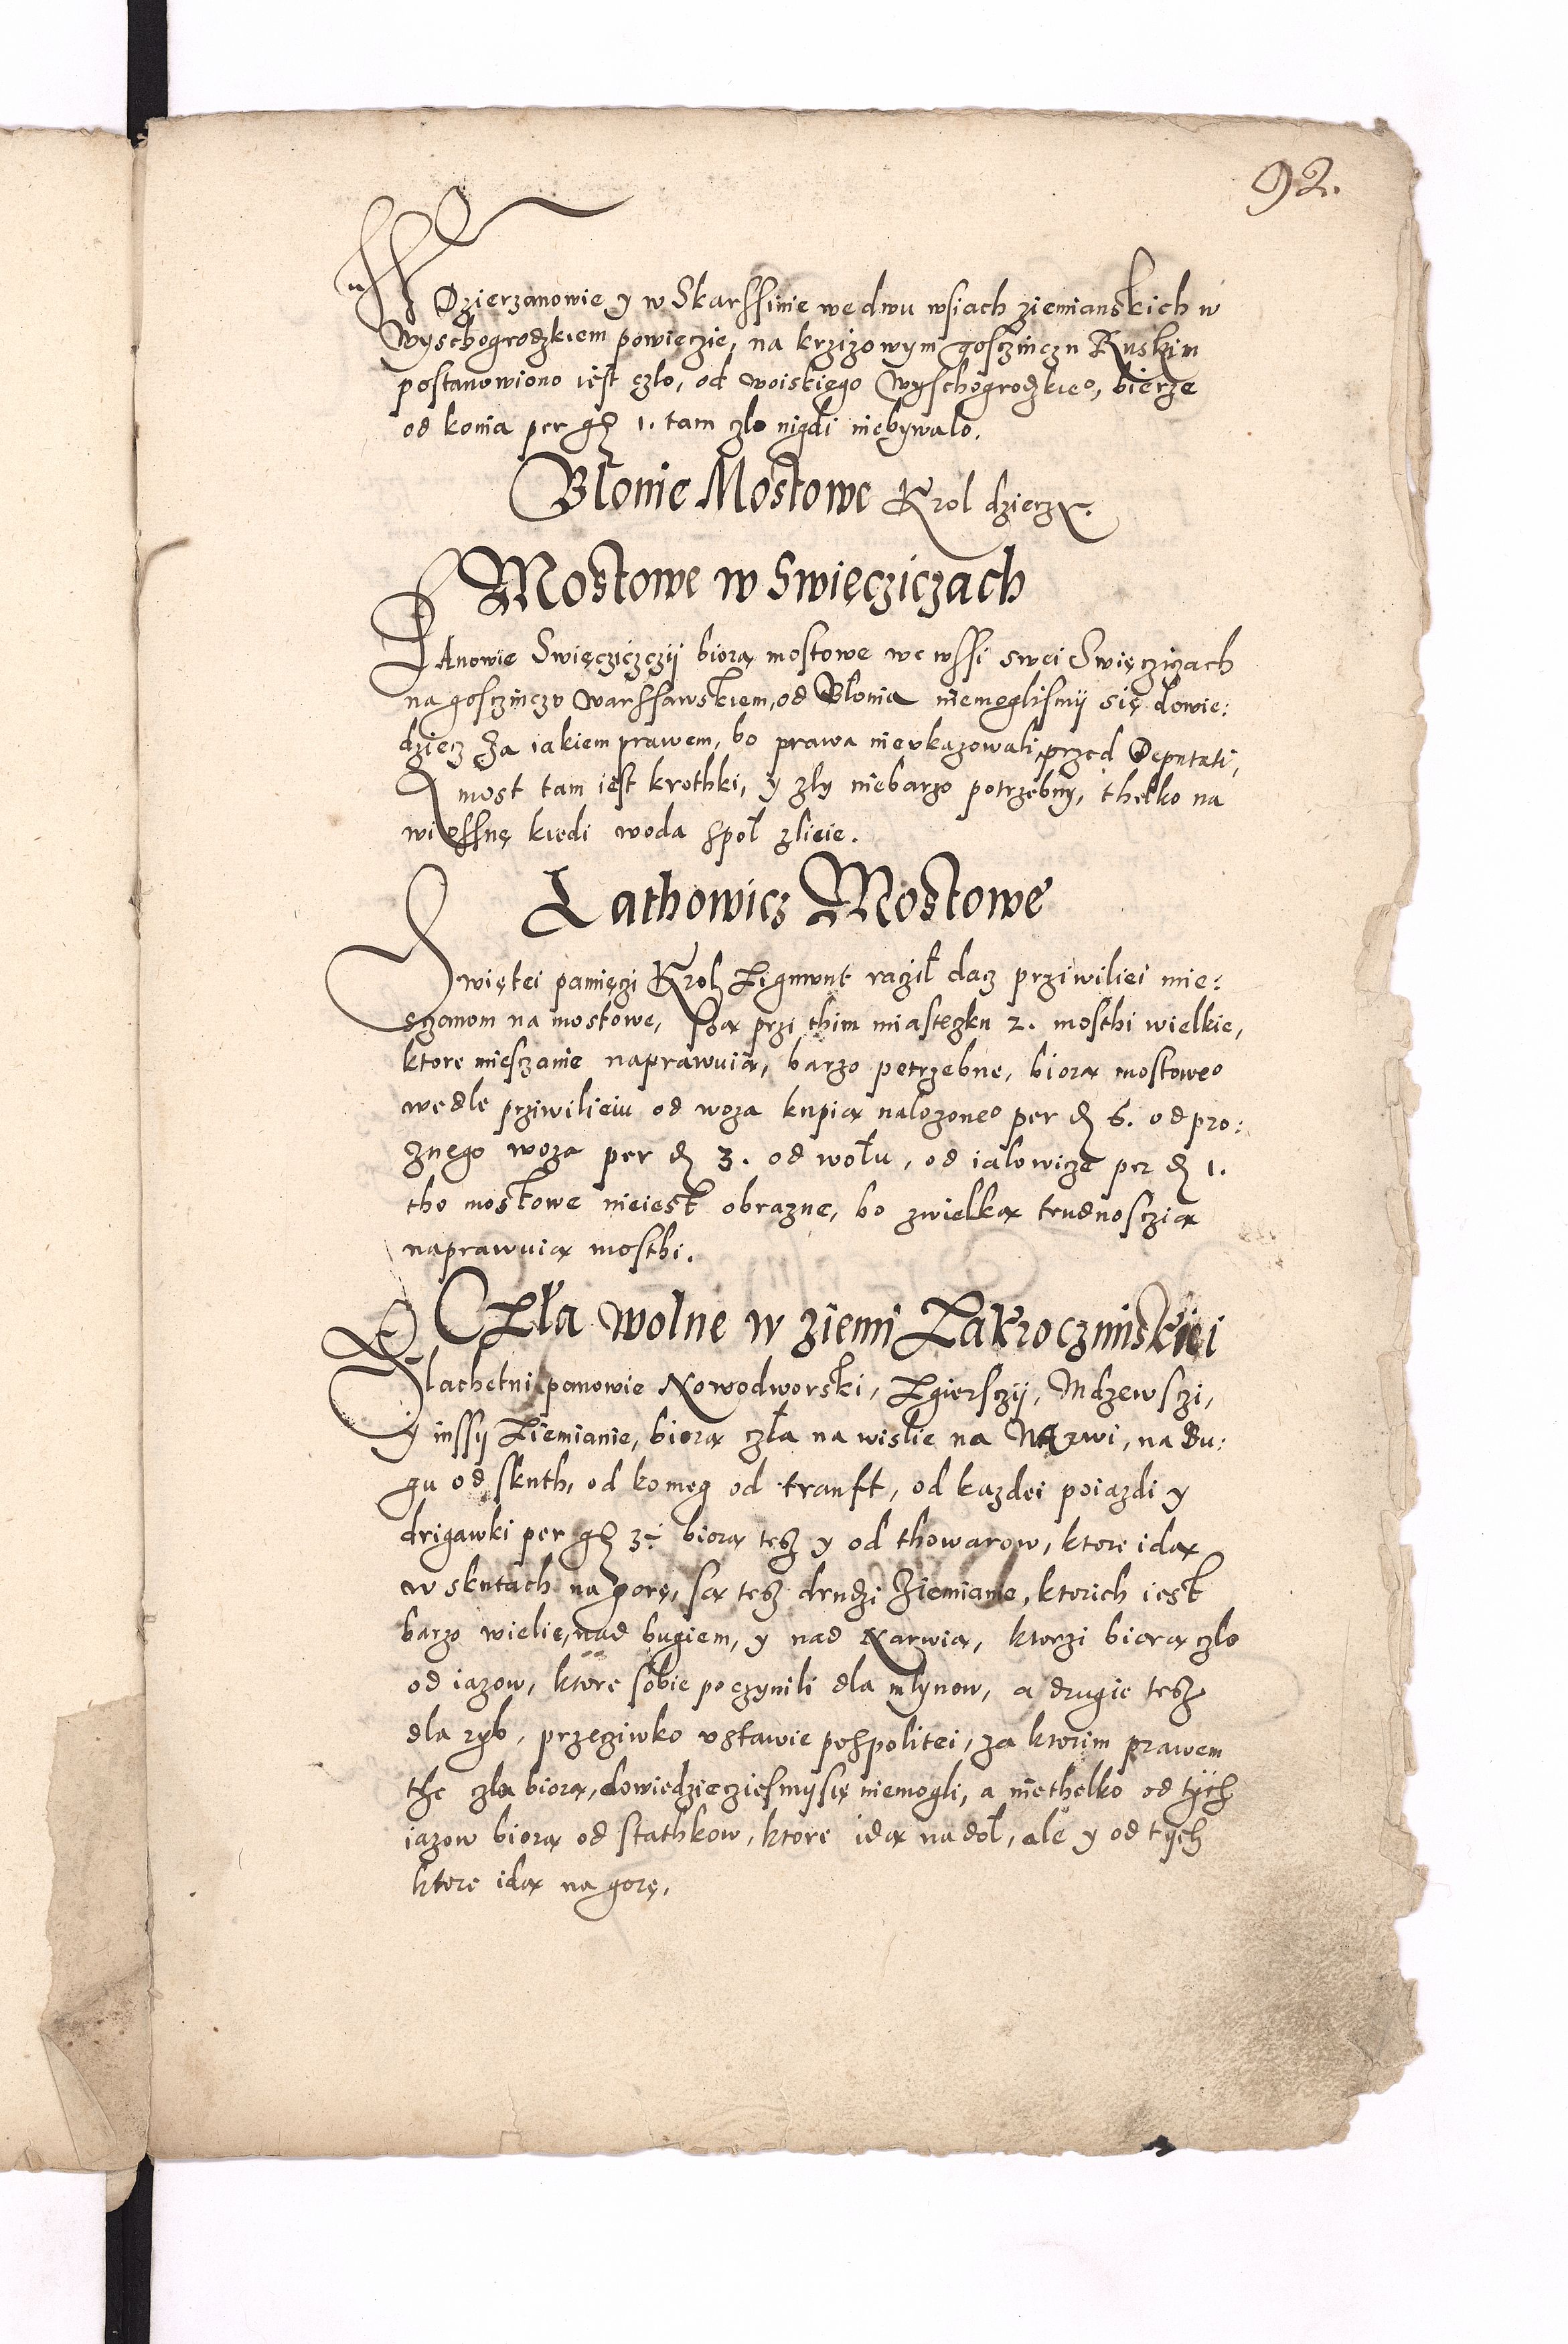 92.
W Dzierzanowie y w Skarssinie we dwu wsiach ziemianskich w
Wyschogrodzkiem powieczie, na krziżowym gosczinczu Ruskim
postanowiono iest czło, od woiskiego Wyschogrodzkieo, bierze
od konia per gr 1. tam czlo nigdi niebywalo.
Błonie Mostowe Krol dzierzy.
Mostowe w Swięcziczach
PAnowie Swięcziczczij biorą mostowe we wssi swei Swięcziczach
na gosczinczu warssawskiem, od Błonia niemoglismij się dowie:
dziecz za iakiem prawem, bo prawa nieukazowali przed Deputati,
A most tam iest krothki, y zly niebarzo potrzebny, thelko na
wiessnę kiedi woda społ zlieie.
Zathowicz Mostowe
Swiętei pamięczi Krol Zigmunt racził dacz prziwiliei mie:
sczanom na mostowe, Są przi thim miasteczku 2. mosthi wielkie,
ktore miesczanie naprawuią, barzo potrzebne, biorą mostoweo
wedle prziwilieiu od woza kupią nalozoneo per d 6. od pro:
znego woza per d 3. od wołu, od ialowicze per d 1.
tho mostowe nieiest obrazne, bo zwielką trudnosczią
naprawuią mosthi.
Czła wolne w ziemi Zakroczimskiei
Slachetni panowie Nowodworski, Zgiersczij, Mdzewsczi,
y inssij Ziemianie, biorą czła na wislie na Narwi, na Bu:
gu od skuth, od komeg od tranft, od kazdei poiazdi y
drigawki per gr 3÷ biorą tesz y od thowarow, ktore idą
w skutach na gorę, są tesz drudzi Ziemianie, ktorich iest
barzo wielie, nad bugiem, y nad Narwią, ktorzi biorą czlo
od iazow, ktore sobie poczynili dla młynow, a drugie tesz
dla ryb, przecziwko ustawie pospolitei, za ktorim prawem
the czla biorą, dowiedziecziesmysię niemogli, a niethelko od tych
iazow biorą od stathkow, ktore idą na doł, ale y od tych
ktore idą na gorę,